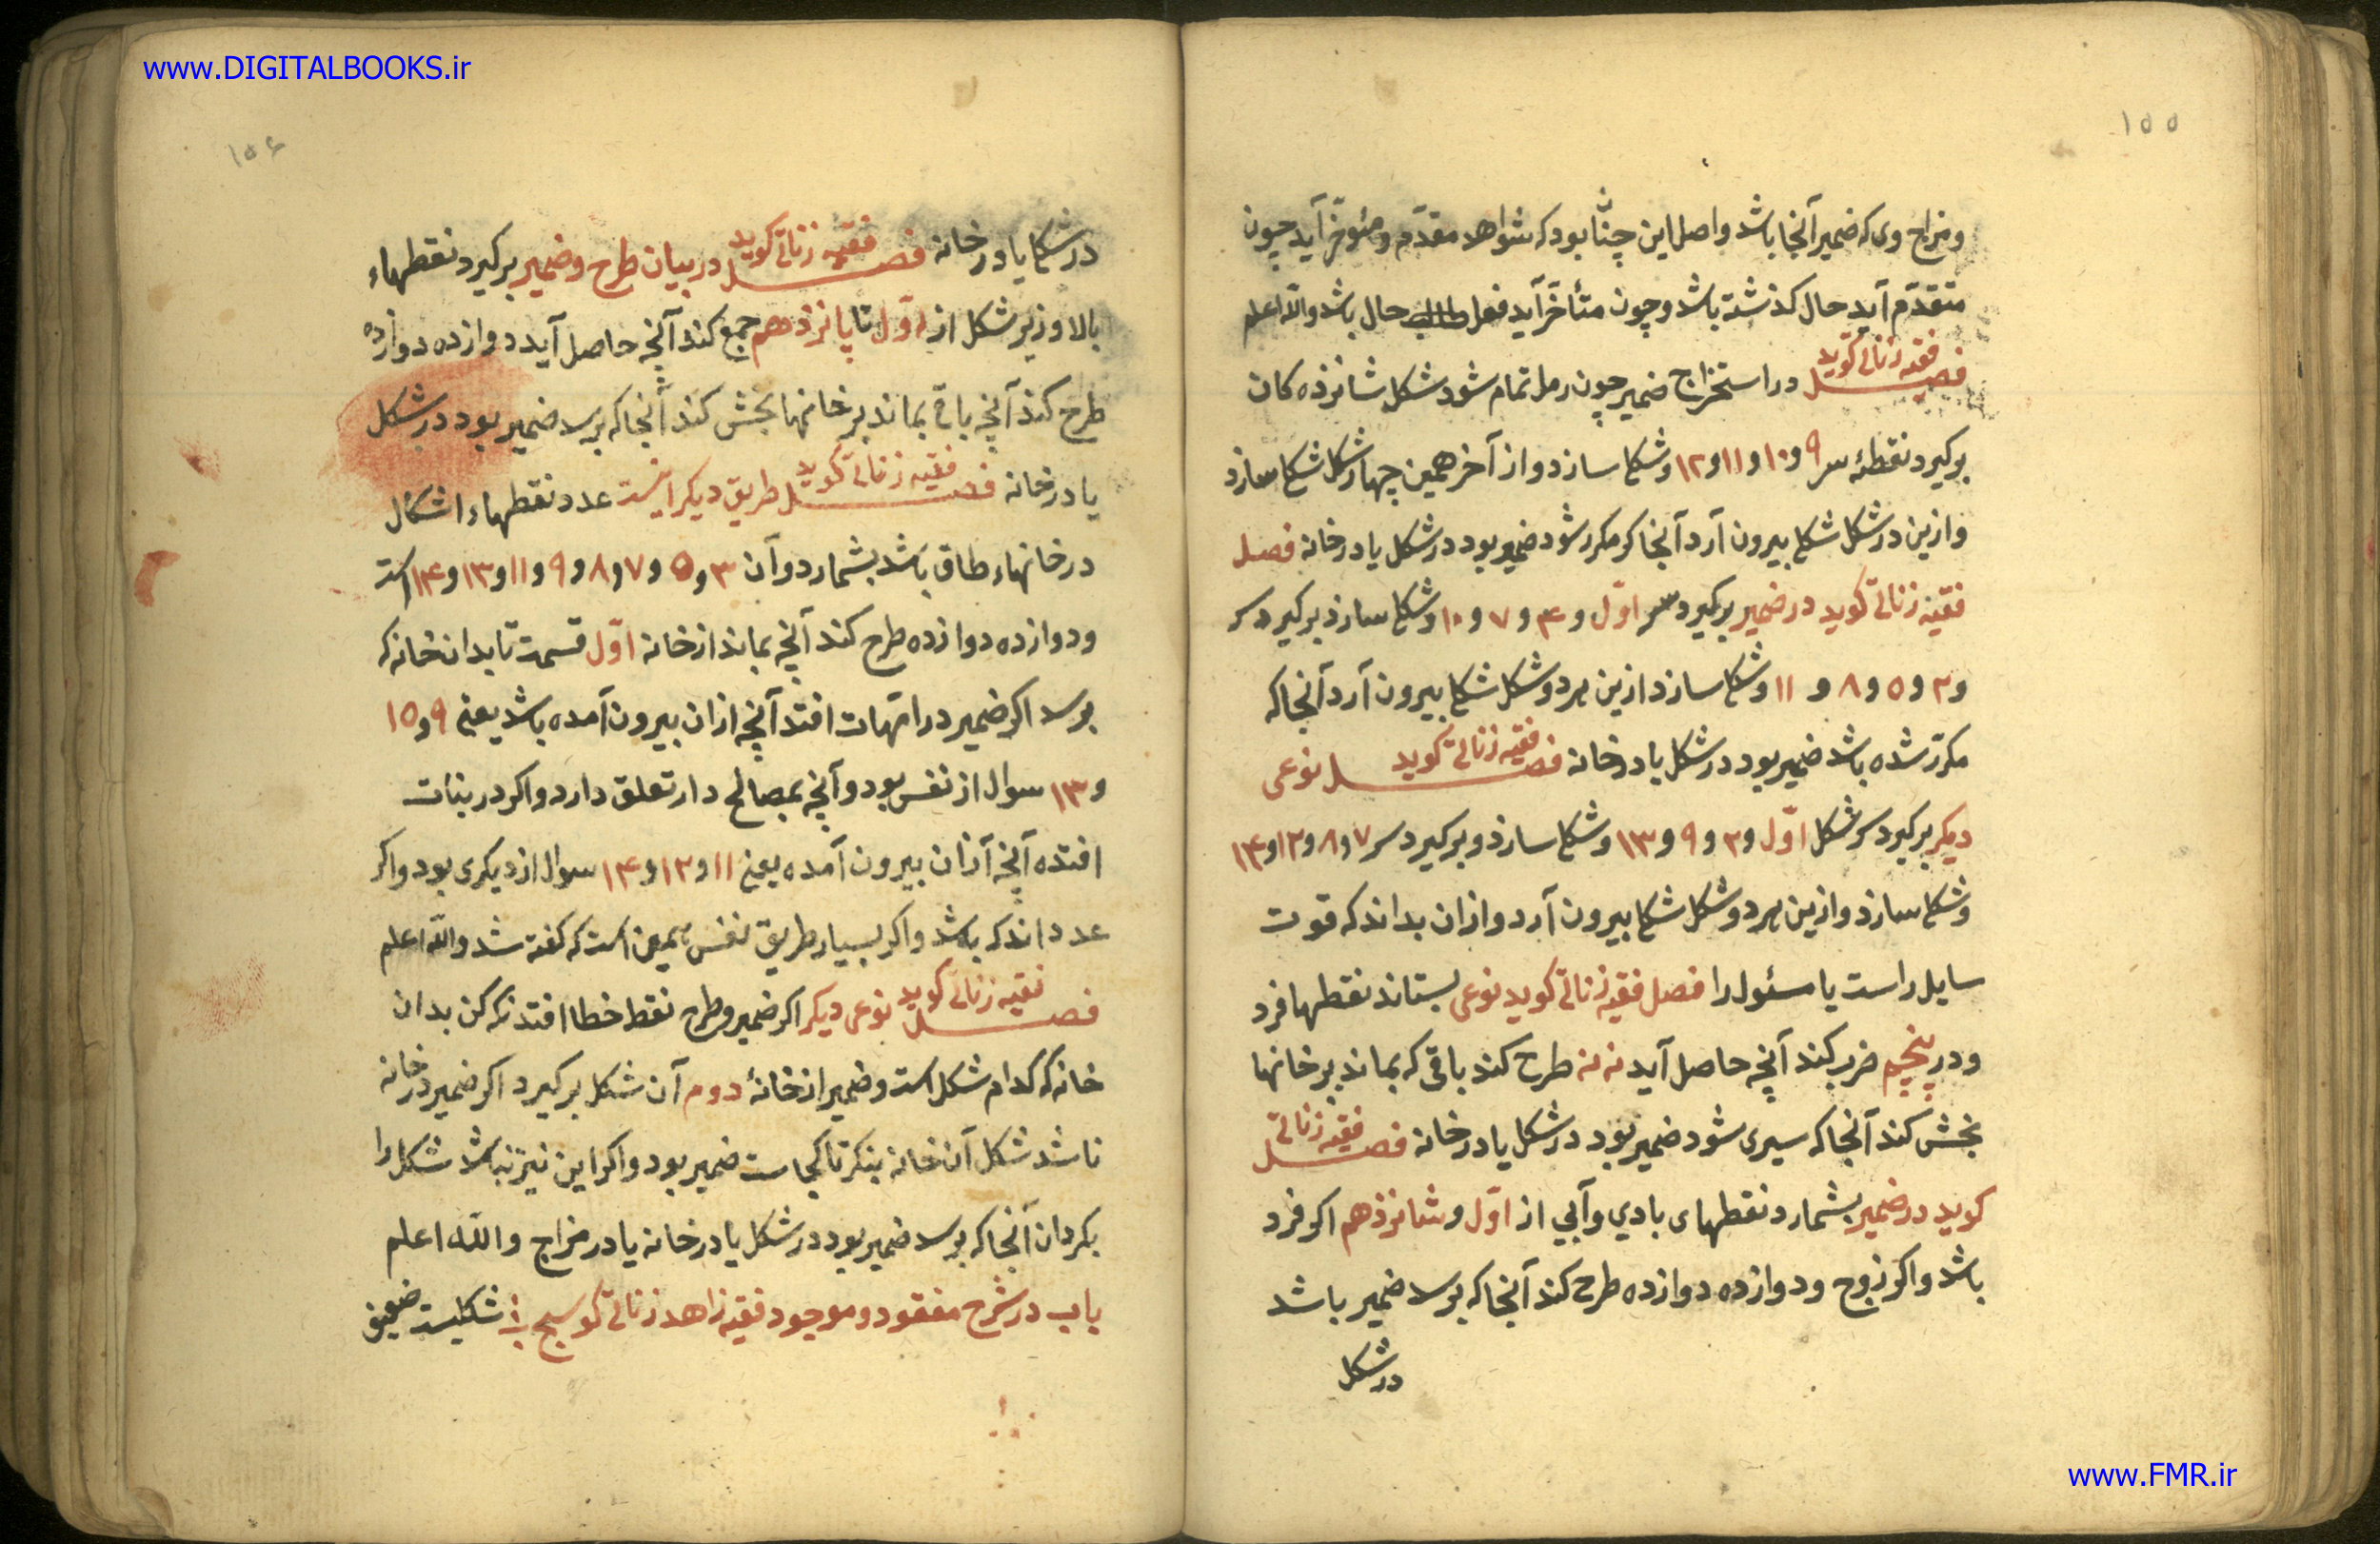 ۱۵۵
و مزاج وی که ضمیر آنجا باشد و اصل این چنان بود که شواهد مقدّم و مئوخّر آید چون
متقدّم آید حال کذشته باشد و چون متأخّر آید فعل حال باشد والله اعلم
فصل فقیه زناتی کوید در استخراج ضمیر چون رمل تمام شود شکل شانزده کان
برکیرد نقطهٔ سر ۹ و ۱۰ و ۱۱ و ۱۲ و شکلی سازد و از آخر همین چهار شکل شکلی سازد
و ازین دو شکل شکلی بیرون آرد آنجا که مکرر شود ضمیر بود در شکل یا در خانه فصل
فقیه زناتی کوید در ضمیر برکیرد سر اوّل و ۴ و ۷ و ۱۰ و شکلی سازد برکیرد سر
و ۲ و ۵ و ۸ و ۱۱ و شکلی سازد ازین هر دو شکل شکلی بیرون آرد آنجا که
مکرّر شده باشد ضمیر بود در شکل یا در خانه فصل فقیه زناتی کوید نوعی
دیکر برکیرد سر شکل اوّل و ۲ و ۹ و ۱۳ و شکلی سازد و برکیرد سر ۷ و ۸ و ۱۲ و ۱۴
و شکلی سازد و ازین هر دو شکل شکلی بیرون آرد و ازان بداند که قوت
سایل راست یا مسئول را فصل فقیه زناتی کوید نوعی بستاند نقطها فرد
و در پنجم ضرب کند آنچه حاصل آید نه نه طرح کند باقی که بماند بر خانها
بخش کند آنجا که سپری شود ضمیر بود در شکل یا در خانه فصل فقیه زناتی
کوید در ضمیر بشمارد نقطهای بادی و آبی از اوّل و شانزدهم اکر فرد
باشد و اکر زوج و دوازده دوازده طرح کند آنجا که برسد ضمیر باشد
در شکل
۱۵۶
در شکل یا در خانه فصل فقیه زناتی کوید در بیان طرح و ضمیر برکیرد نقطهاء
بالا و زیر شکل از اوّل تا پانزدهم جمع کند آنچه حاصل آید دوازده دوازده
طرح کند آنچه باقی بماند بر خانها بخش کند آنجا که برسد ضمیر بود در شکل
یا در خانه فصل فقیه زناتی کوید طریق دیکر اینست عدد نقطهاء اشکال
در خانهاء طاق باشد بشمارد و آن ۳ و ۵ و ۷ و ۸ و ۹ و ۱۱ و ۱۳ و ۱۴ است
و دوازده دوازده طرح کند آنچه بماند از خانه اوّل قسمت تا بدان خانه که
برسد اکر ضمیر در امّهات افتد آنچه ازان بیرون آمده باشد یعنی ۹ و ۱۵
و ۱۳ سوال از نفس بود و آنچه بمصالح دار تعلق دارد و اکر در بنات
افتده آنچه ازان بیرون آمده یعنی ۱۱ و ۱۲ و ۱۴ سوال از دیکری بود و اکر
عدد اندکه باشد و اکر بسیار طریق نفس همین است که کفته شد والله اعلم
فصل فقیه زناتی کوید نوعی دیکر اکر ضمیر و طرح نقط خطا افتد نکه کن بدان
خانه که کدام شکل است و ضمیر از خانهٔ دوم آن شکل برکیرد اکر ضمیر در خانه
ناشد شکل آن خانه بنکر تا کجاست ضمیر بود و اکر این نیز نباشد شکل را
بکردان آنجا که برسد ضمیر بود در شکل یا در خانه یا در مزاج والله اعلم
باب در شرح مفقود و موجود فقیه زاهد زناتی کوسج شکلیست ضعیف
www.DIGITALBOOKS.ir
www.FMR.ir